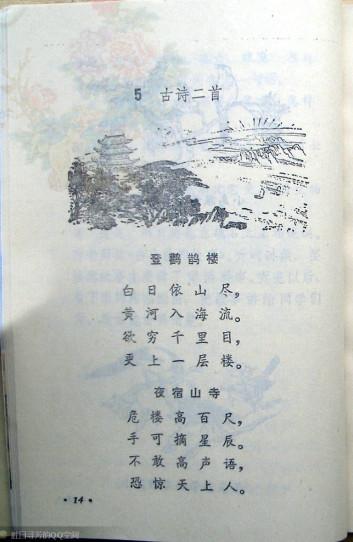 5 古诗二首
登鹳鹊楼
白日依山尽，
黄河入海流。
欲穷千里目，
更上一层楼。
夜宿山寺
危楼高百尺，
手可摘星辰。
不敢高声语，
恐惊天上人。
·14·
的QQ空间